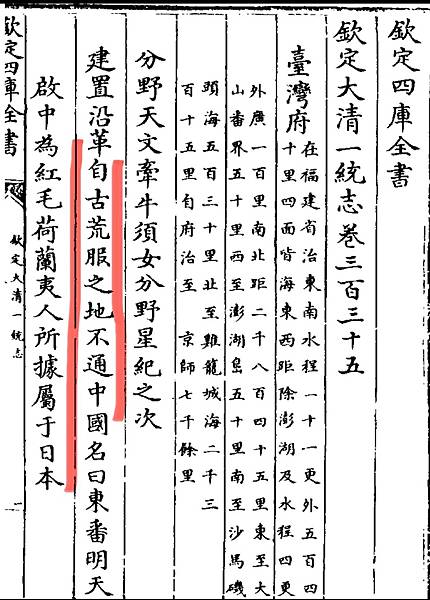 欽定四庫全書
欽定大清一統志卷三百三十五
臺灣府在福建省治東南水程一十一更外五百四
十里四面皆海東西距除澎湖及水程四更
外廣一百里南北距二千八百四十五里東至大
山番界五十里西至澎湖島五十里南至沙馬磯
頭海五百三十里北至雞籠城海二千三
百十五里自府治至 京師七千餘里
分野天文牽牛須女分野星紀之次
建置沿革自古荒服之地不通中國名曰東番明天
啟中為紅毛荷蘭夷人所據屬于日本
欽定四庫全書
欽定大清一統志
一